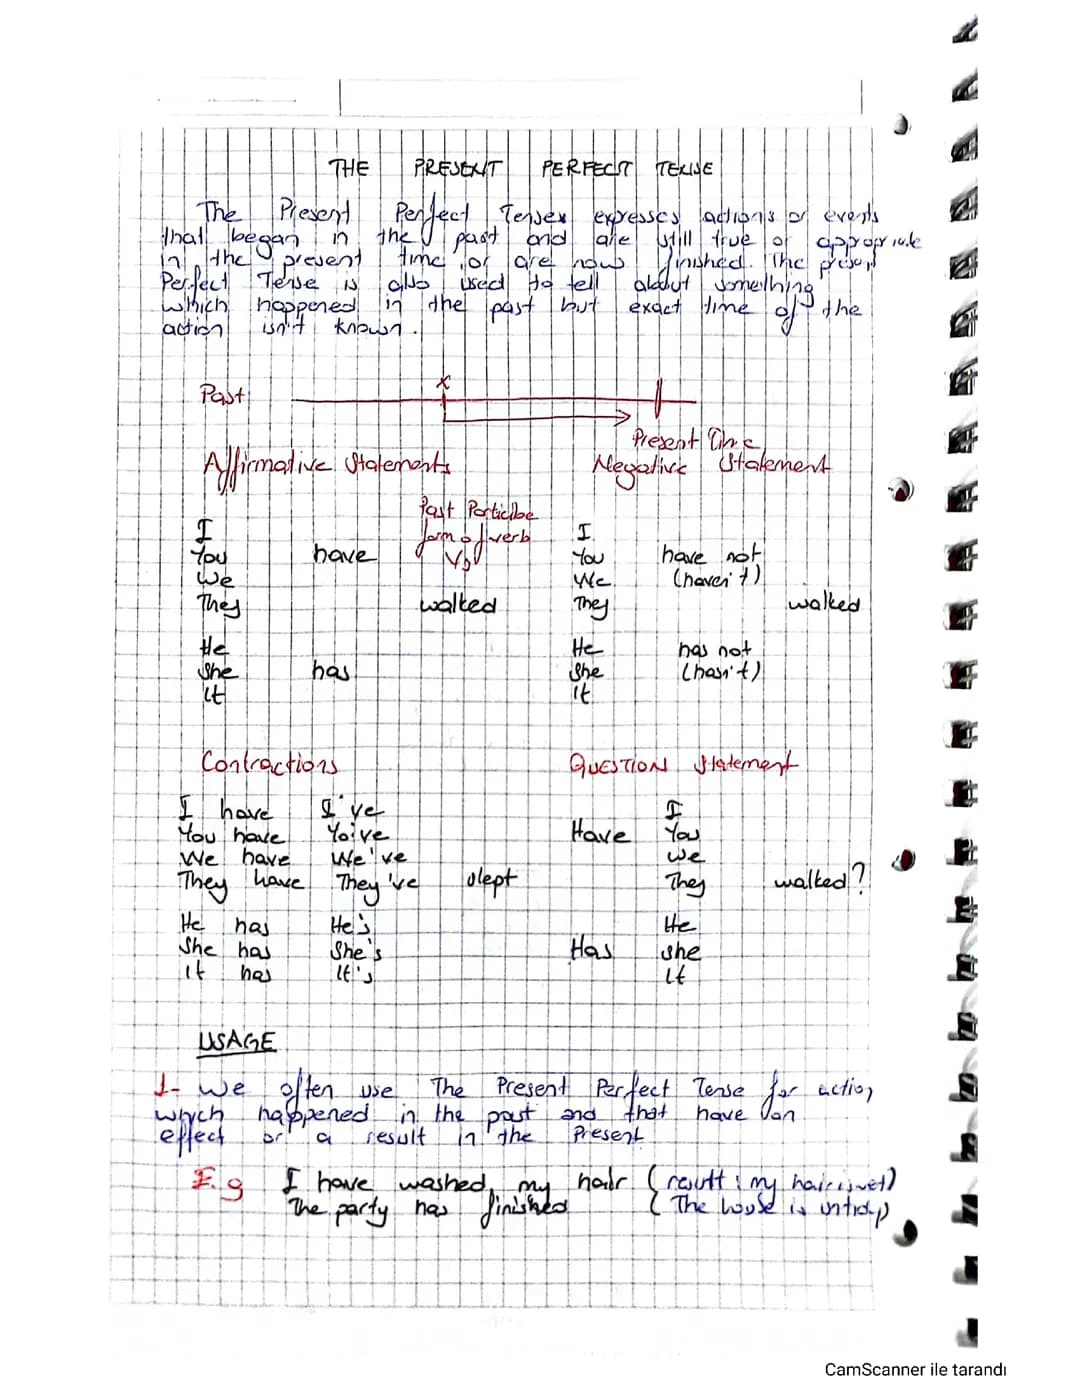 THE PRESENT PERFECT TENSE
The Present Perfect Tenses expresses actions or events
that began in the past and are still true or appropriate
in the present time or are now finished. The present
Perfect Tense is also used to tell about something
which happened in the past but exact time of the
action isn't known.
Past x
Present Time
Affirmative Statements
Negative Statement
Past Participle
form of verb
V3
I
You have
We
They walked
He
She has
It
I
You have not
We (haven't)
They walked
He has not
She (hasn't)
It
Contractions
I have I've
You have Yo've
We have We've
They have They've slept
He has He's
She has She's
It has It's
QUESTION Statement
I
Have You
we
They walked?
He
Has she
It
USAGE
1- We often use The Present Perfect Tense for action
which happened in the past and that have an
effect or a result in the Present
E.g I have washed my hair (result : my hair is wet)
The party has finished ( The house is untidy)
CamScanner ile tarandı